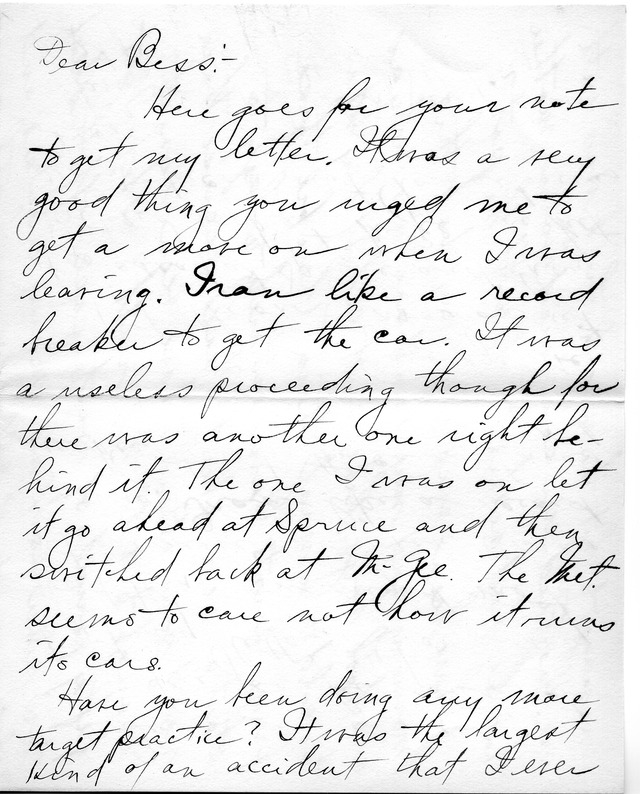 Dear Bess:-
Here goes for your note
to get my letter. It was a very
good thing you urged me to
get a move on when I was
leaving. I ran like a record
breaker to get the car. It was
a useless proceeding though for
there was another one right be-
hind it. The one I was on let
it go ahead at Spruce and then
switched back at McGee. The Met.
seems to care not how it runs
its cars.
Have you been doing any more
target practice? It was the largest
kind of an accident that I ever